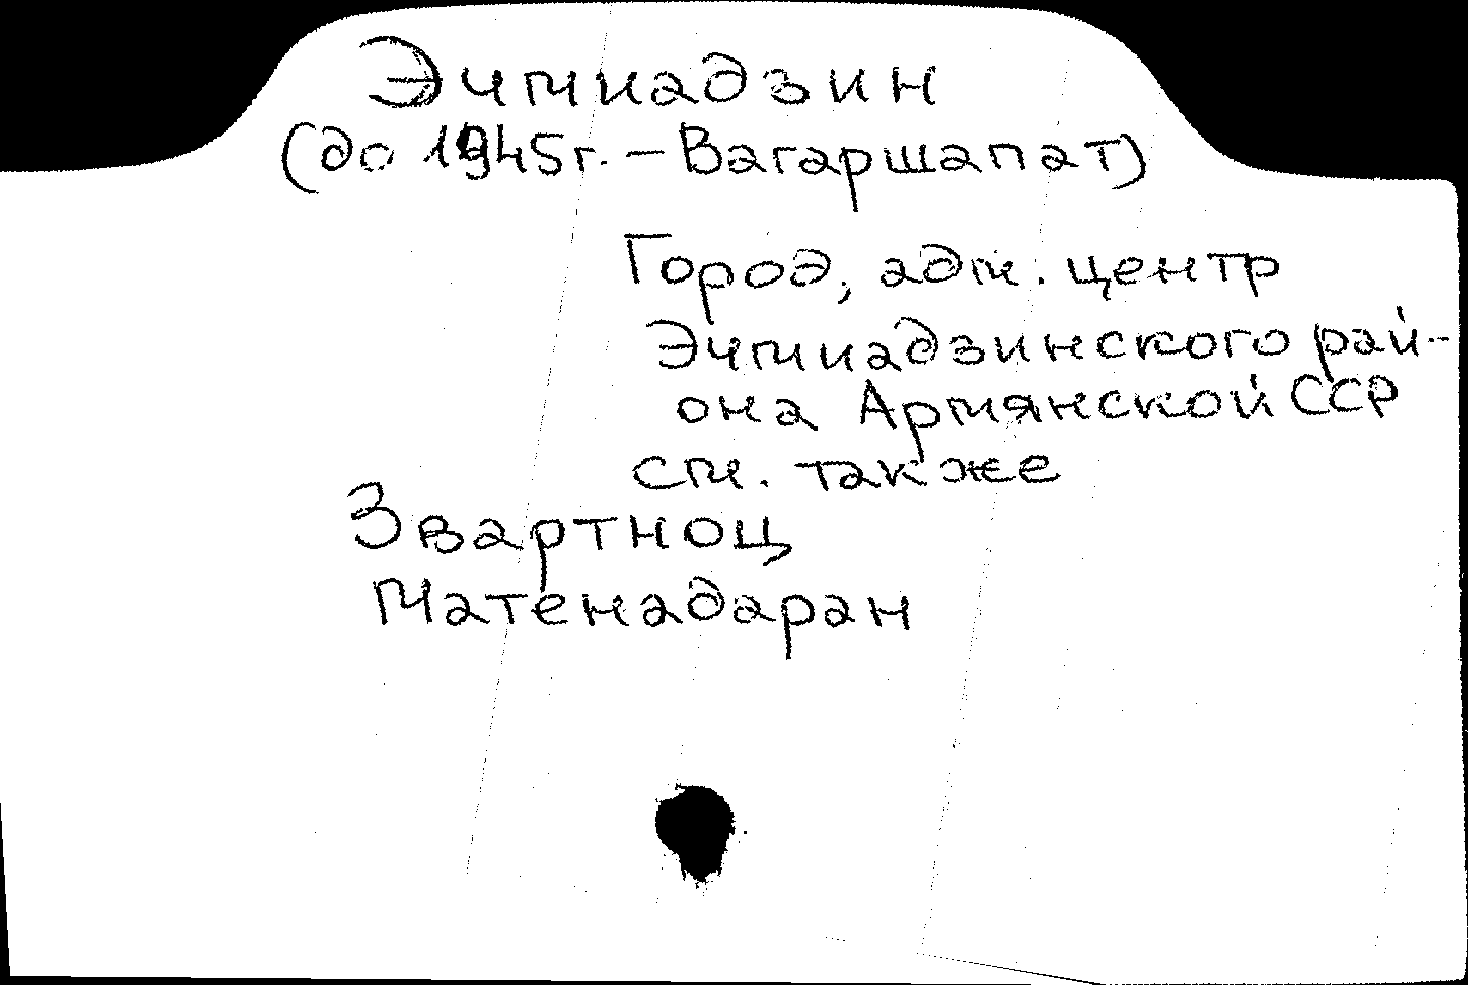 Эчмиадзин
(до 1945г. – Вагаршапат)
Город, адм. центр
Эчмиадзинского рай-
она Армянской ССР
см. также
Звартноц
Матенадаран